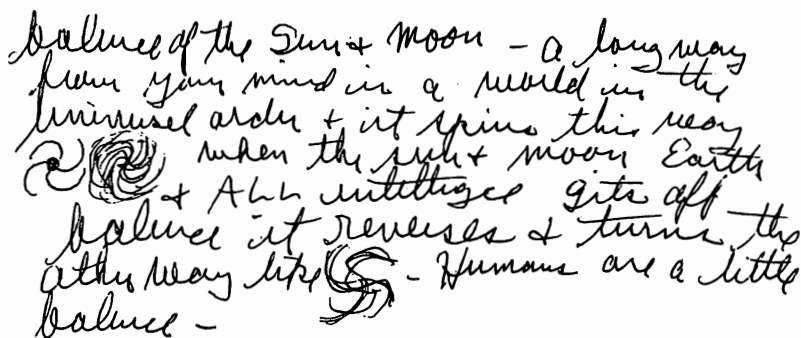 balance of the Sun & moon - a long way
from your mind in a world in the
Universel order & it spins this way
when the sun & moon Earth
& ALL intelligce gits off
balance it reverses & turns the
other way like - Humans are a little
balance -